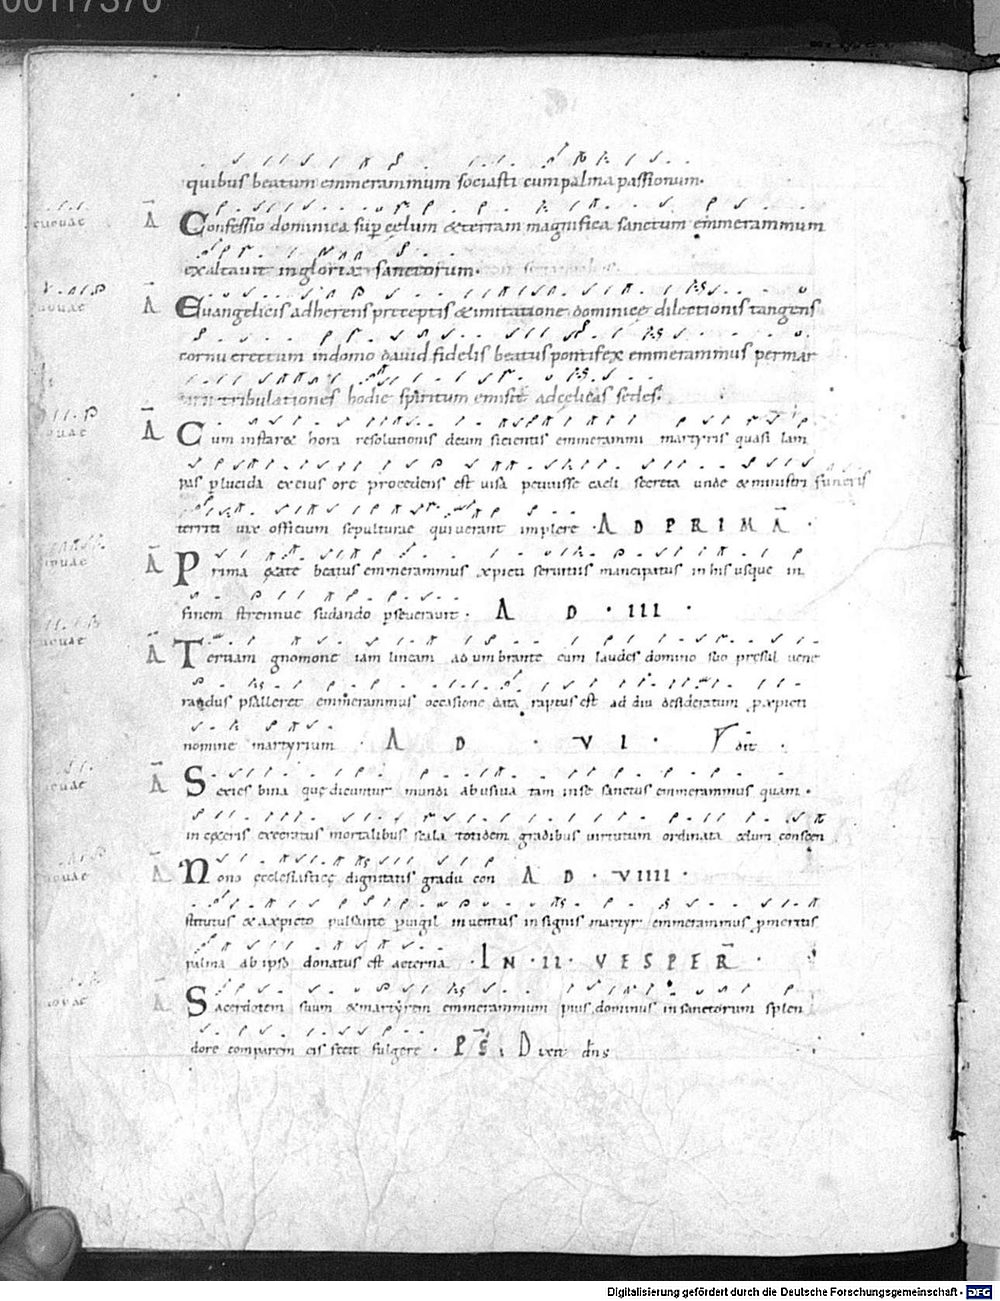 00117370
quibus beatum emmerammum sociasti cum palma passionum.
euouae A Confessio dominica sup̄ cęlum & terram magnifica sanctum emmerammum
exaltauit in gloriae sanctorum.
A Euangelicis adherens pręceptis & imitatione dominicę dilectionis tangens
cornu erectum in domo dauid fidelis beatus pontifex emmerammus per mar
tribulationes hodie spiritum emisit ad cęlicas sedes.
ouae A Cum instar& hora resolutionis deum sicientis emmerammi martyris quasi lam
pas plucida ex eius ore procedens est uisa petiuisse caeli secreta unde & ministri funeris
territi uix officium sepulturae quiuerant implere . AD PRIMA .
A Prima ętate beatus emmerammus xp̄icti seruitiis mancipatus in his usque in
finem strennue sudando p̱seuerauit . A D . III .
A Ternam gnomone iam lineam adumbrante cum laudes domino suo presul uene
randus psalleret emmerammus occasione data raptus est ad diu desideratum p xpicti
nomine martyrium . A D . VI .
A Sexies bina quę dicuntur mundi abusiua tam in se sanctus emmerammus quam .
in cęteris execratus mortalibus scala totidem gradibus uirtutum ordinata cęlum conscen
A Nono ecclesiasticę dignitatis gradu con A D . VIIII .
stitutus & a xpicto pulsante puigil inuentus insignis martyr emmerammus p̱meritis
palma ab ipso donatus est aeterna . IN . II . VESPER̄ .
A Sacerdotem suum & martyrem emmerammum pius dominus in sanctorum splen
dore comparem eis fecit fulgere . Ps̄ . Dixit dn̄s
Digitalisierung gefördert durch die Deutsche Forschungsgemeinschaft - DFG